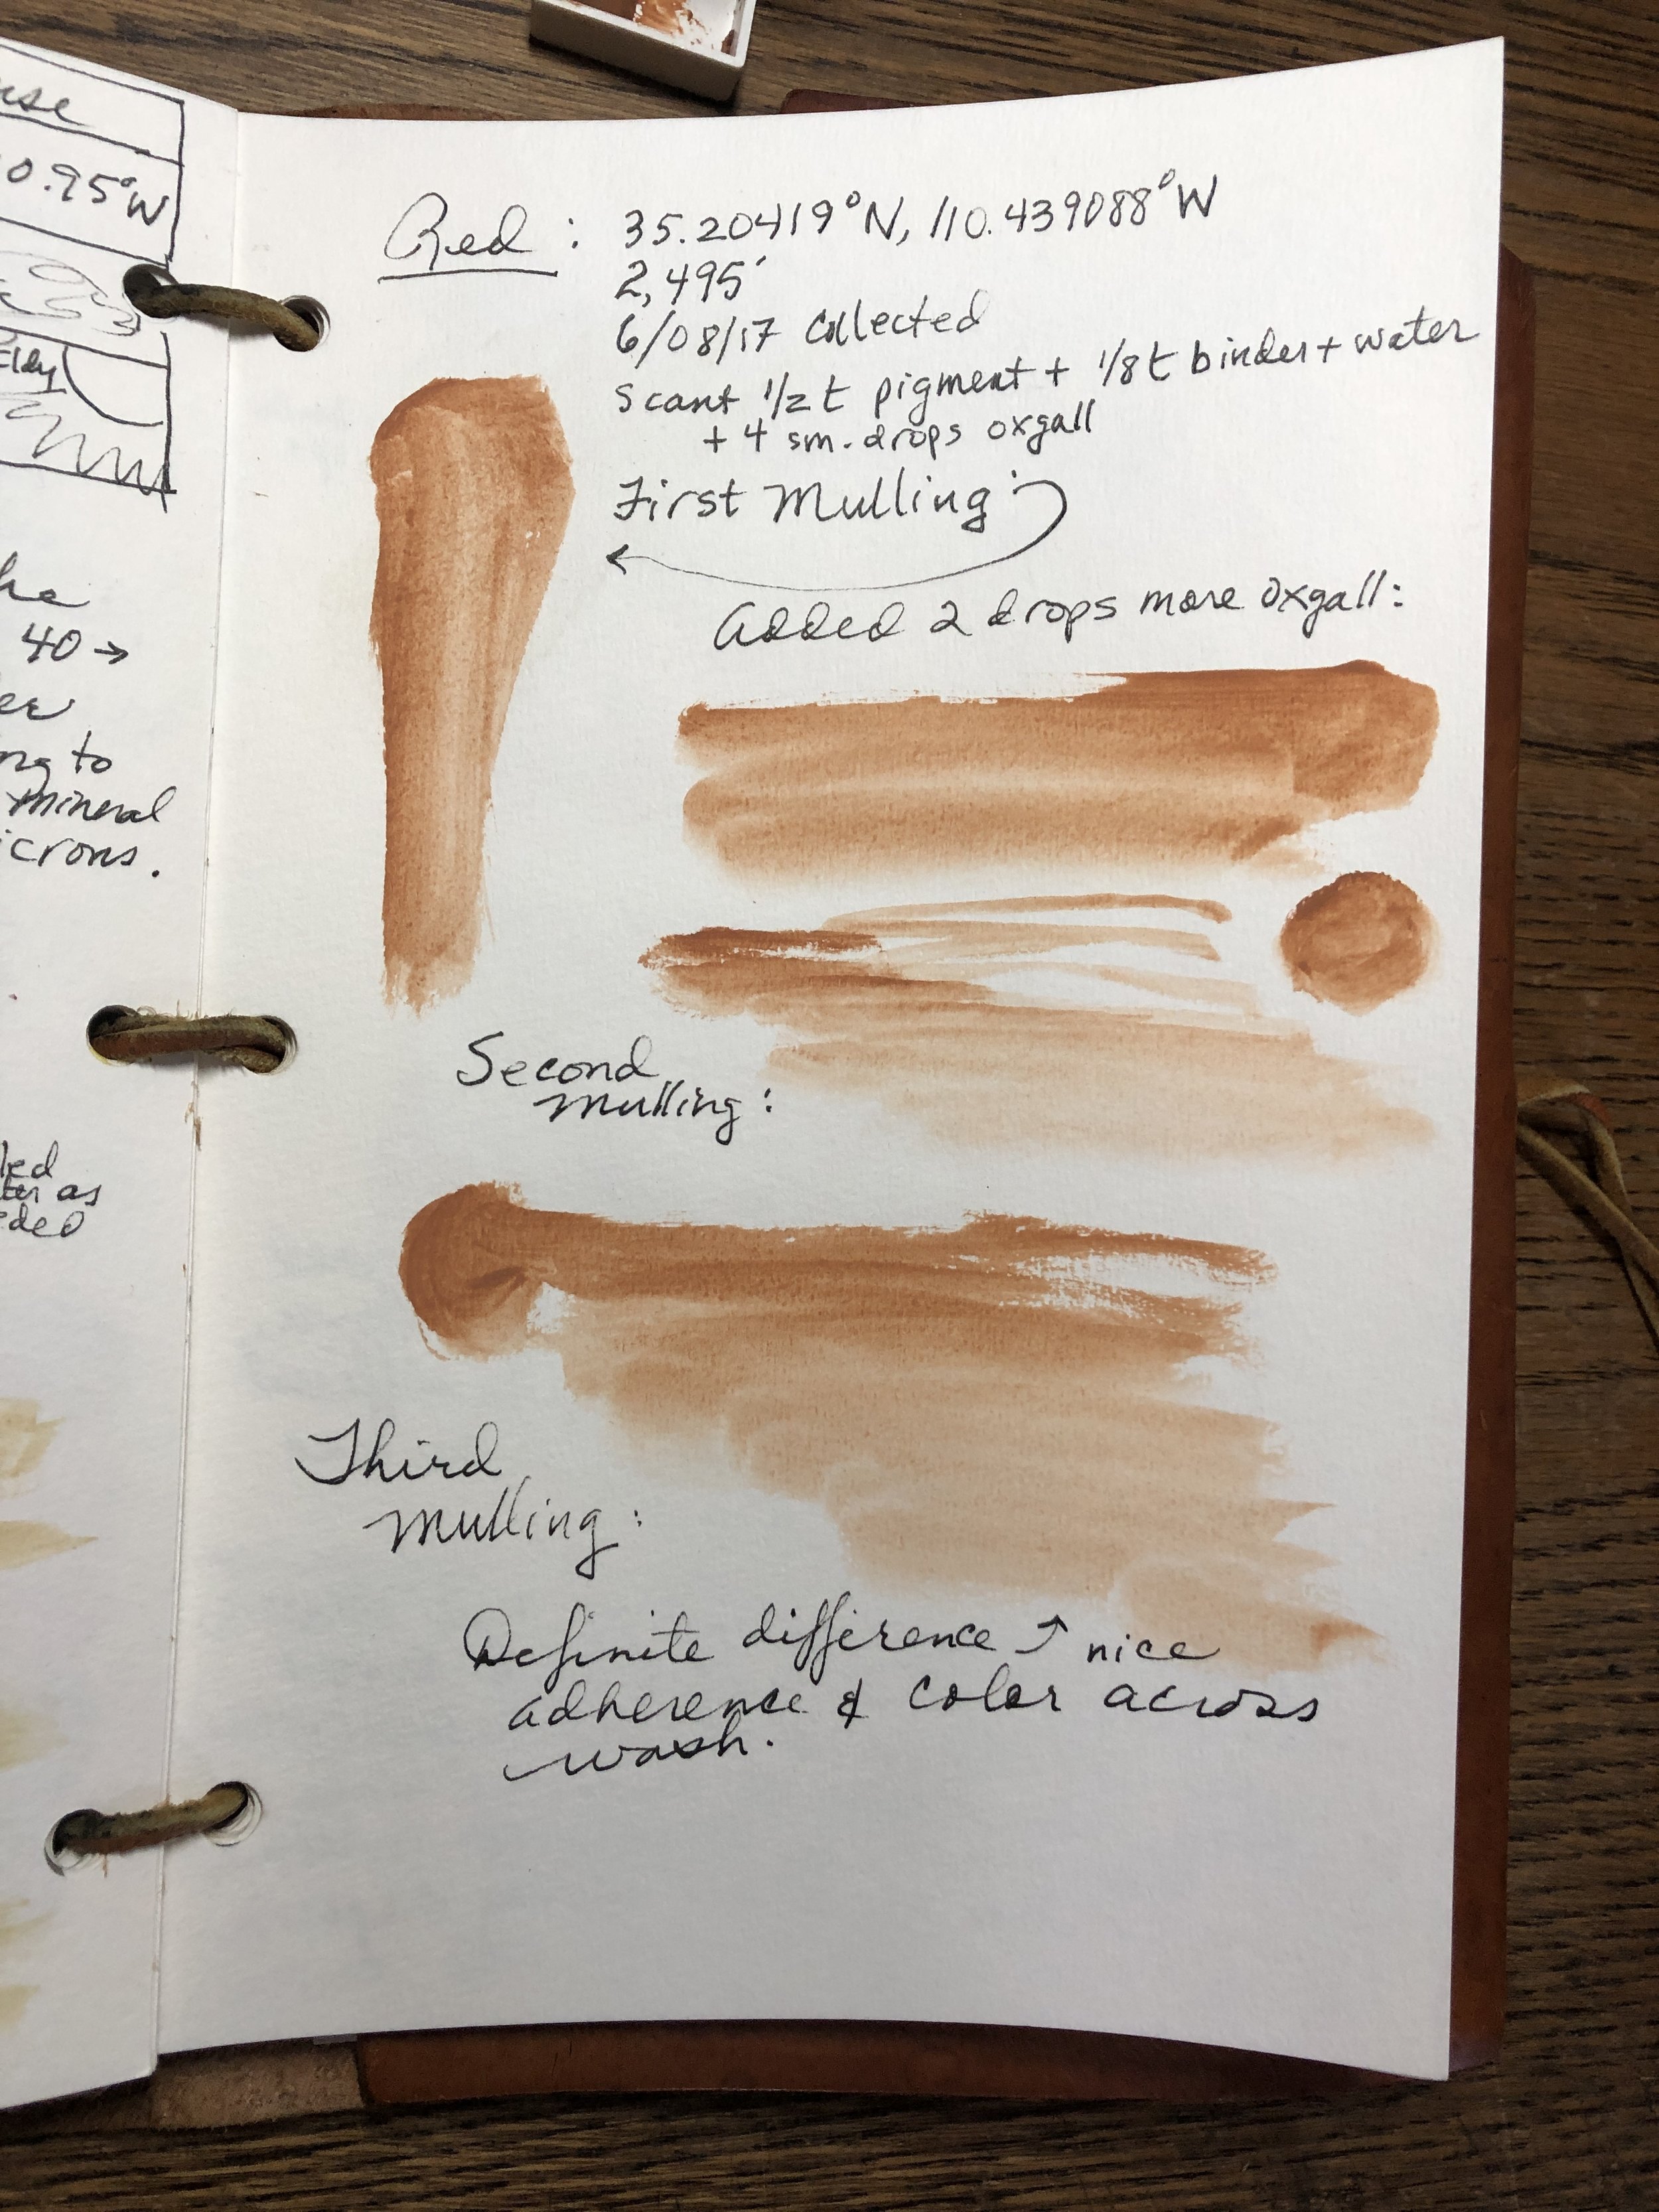 0.95°W
he
40 →
er
ng to
mineral
icrons.
led
ter as
eded
Red : 35.20419°N, 110.439088°W
2,495'
6/08/17 collected
Scant 1/2 t pigment + 1/8 t binder + water
+ 4 sm. drops oxgall
First Mulling :
Added 2 drops more oxgall:
Second
mulling :
Third
mulling :
Definite difference ↑ nice
adherence & color across
wash.